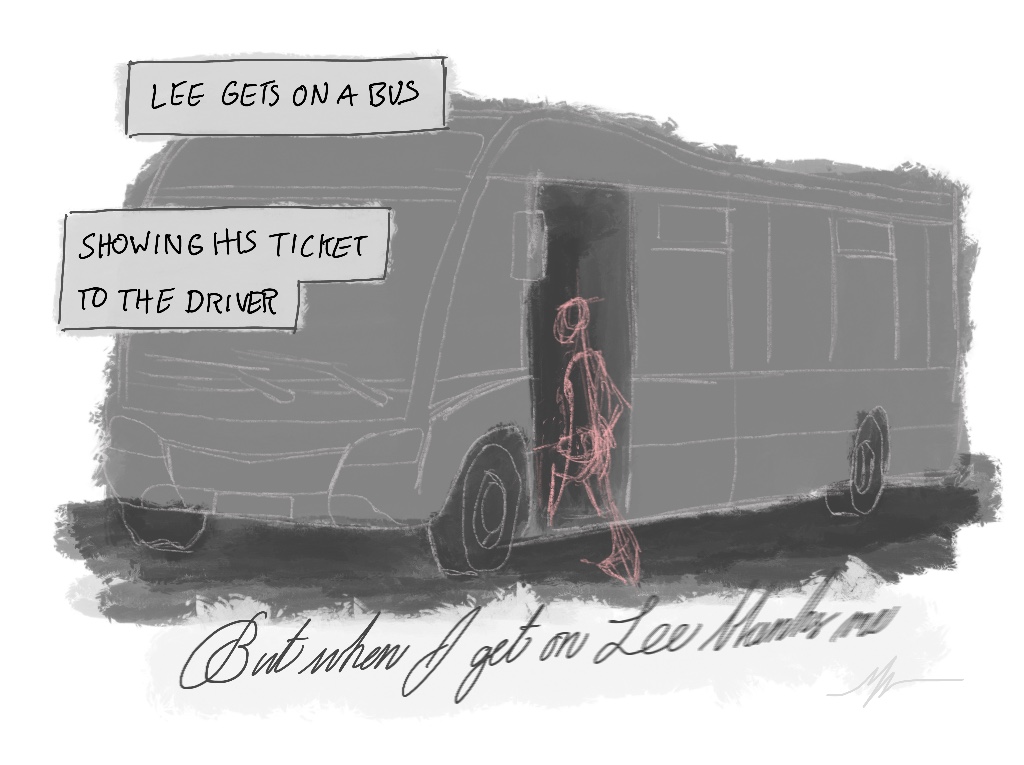 LEE GETS ON A BUS
SHOWING HIS TICKET
TO THE DRIVER
But when I get on Lee thanks me